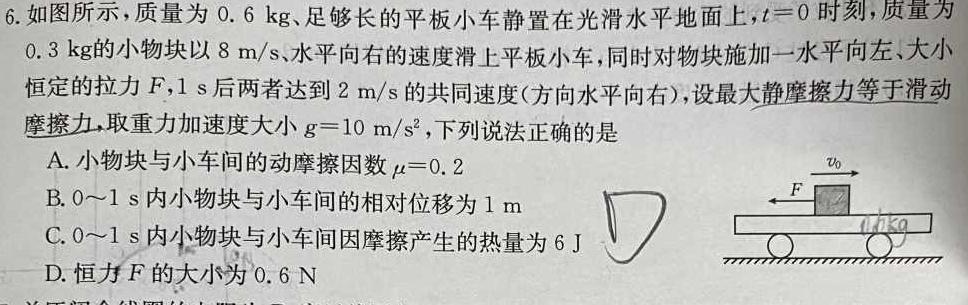 6.如图所示,质量为 0.6 kg、足够长的平板小车静置在光滑水平地面上,t=0 时刻,质量为
0.3 kg的小物块以 8 m/s、水平向右的速度滑上平板小车,同时对物块施加一水平向左、大小
恒定的拉力 F,1 s 后两者达到 2 m/s 的共同速度(方向水平向右),设最大静摩擦力等于滑动
摩擦力,取重力加速度大小 g=10 m/s²,下列说法正确的是
A. 小物块与小车间的动摩擦因数 μ=0.2
B. 0~1 s 内小物块与小车间的相对位移为 1 m
C. 0~1 s 内小物块与小车间因摩擦产生的热量为 6 J
D. 恒力 F 的大小为 0.6 N
D
v₀
F
0.6kg